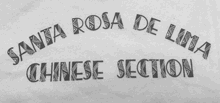 SANTA ROSA DE LIMA
CHINESE SECTION